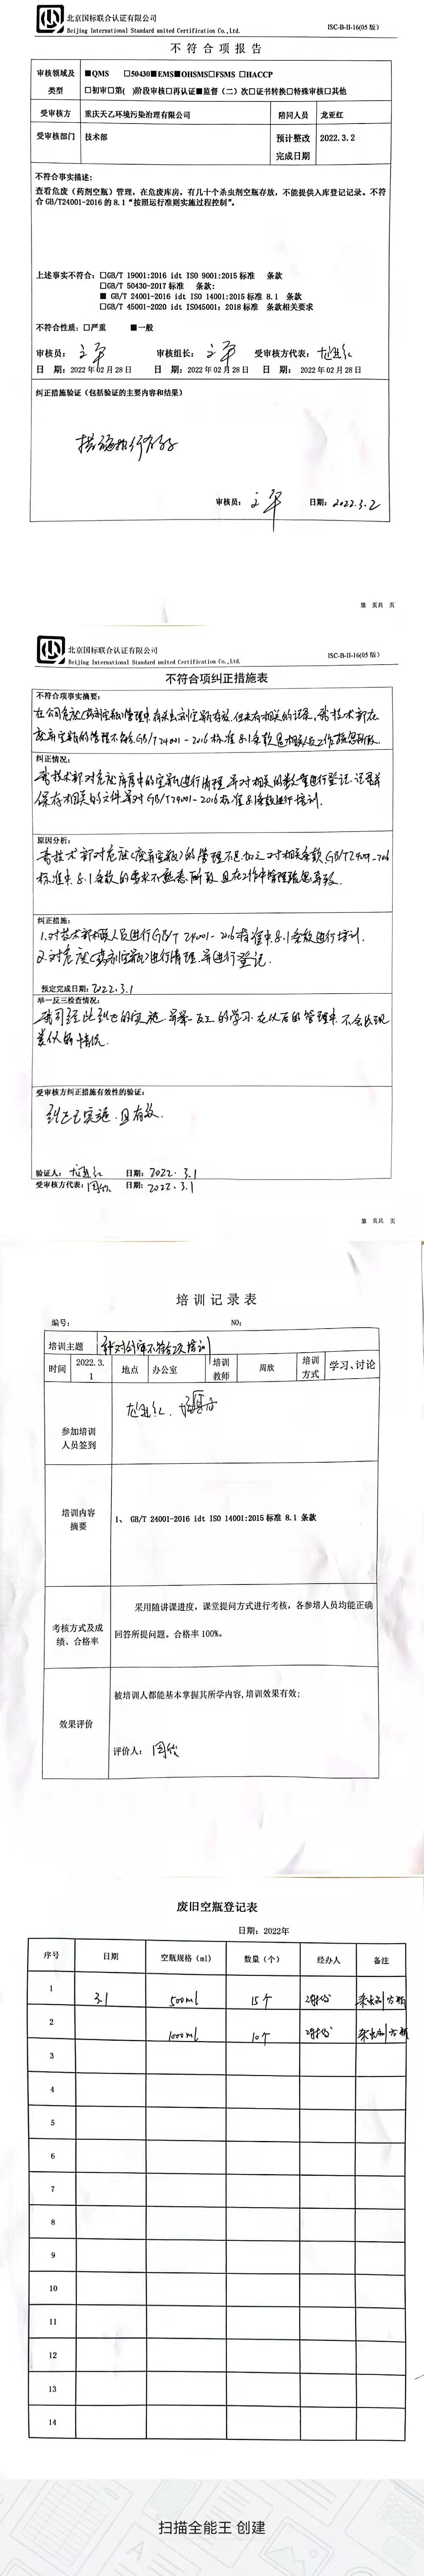 北京国标联合认证有限公司
Beijing International Standard united Certification Co.,Ltd.
ISC-B-II-16(05 版)
不符合项报告
审核领域及类型
■QMS □50430■EMS■OHSMS□FSMS □HACCP
□初审□第( )阶段审核□再认证■监督（二）次□证书转换□特殊审核□其他
受审核方 重庆天乙环境污染治理有限公司 陪同人员 龙亚红
受审核部门 技术部 预计整改完成日期 2022.3.2
不符合事实描述:
查看危废（药剂空瓶）管理，在危废库房，有几十个杀虫剂空瓶存放，不能提供入库登记记录。不符
合 GB/T24001-2016 的 8.1 “按照运行准则实施过程控制”。
上述事实不符合: □GB/T 19001:2016 idt ISO 9001:2015 标准 条款
□GB/T 50430-2017 标准 条款:
■ GB/T 24001-2016 idt ISO 14001:2015 标准 8.1 条款
□GB/T 45001-2020 idt ISO45001: 2018 标准 条款相关要求
不符合性质: □严重 ■一般
审核员: 审核组长: 受审核方代表:
日 期: 2022 年 02 月 28 日 日 期: 2022 年 02 月 28 日 日 期: 2022 年 02 月 28 日
纠正措施验证（包括验证的主要内容和结果）
措施执行有效
审核员: 日期: 2022.3.2
第 页共 页
北京国标联合认证有限公司
Beijing International Standard united Certification Co.,Ltd.
ISC-B-II-16(05 版)
不符合项纠正措施表
不符合项事实摘要:
纠正情况:
我技术部对危废库房中的空瓶进行清理,并对相关的数量进行登记.记录并
保存相关的文件,并对GB/T24001-2016标准8.1条款进行培训.
原因分析:
我技术部对危废(废弃空瓶)的管理不足,加之对相关条款GB/T24001-2016
标准中8.1条款的要求不熟悉所致.且在工作中管理疏忽导致.
纠正措施:
1.对技术部相关人员进行GB/T 24001-2016标准中8.1条款进行培训.
2.对危废(药剂空瓶)进行清理,并进行登记.
预定完成日期: 2022.3.1
举一反三检查情况:
我司经此纠正的实施.并举一反三的学习.在以后的管理中.不会出现
类似的情况.
受审核方纠正措施有效性的验证:
纠正已实施.且有效.
验证人: 日期: 2022.3.1
受审核方代表: 周欣 日期: 2022.3.1
第 页共 页
培训记录表
编号: NO:
培训主题 针对外审不符合项培训
时间 2022.3.1 地点 办公室 培训教师 周欣 培训方式 学习、讨论
参加培训人员签到
培训内容摘要
1、 GB/T 24001-2016 idt ISO 14001:2015 标准 8.1 条款
考核方式及成绩、合格率
采用随讲课进度，课堂提问方式进行考核，各参培人员均能正确
回答所提问题。合格率 100%。
效果评价
被培训人都能基本掌握其所学内容,培训效果有效;
评价人: 周欣
废旧空瓶登记表
日期: 2022年
序号 日期 空瓶规格（ml） 数量（个） 经办人 备注
1 3.1 500ml 15个 杀虫剂/空瓶
2 1000ml 10个 杀虫剂/空瓶
3
4
5
6
7
8
9
10
11
12
13
14
扫描全能王 创建